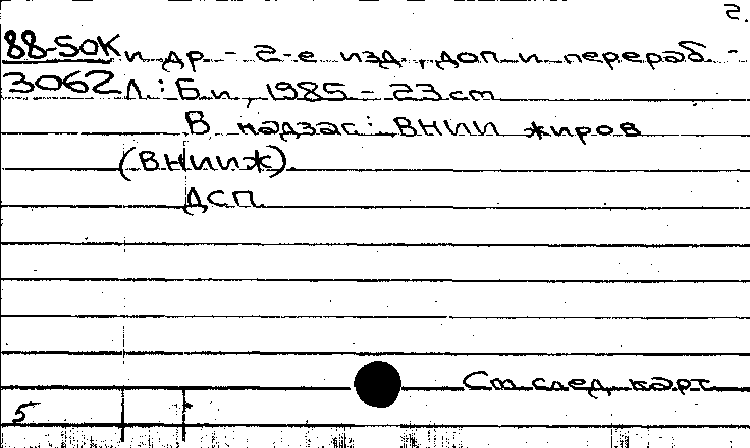 2.
88-50К и др. - 2-е изд., доп и перераб -
3062 Л.: Б.и, 1985 - 23 cm
В надзаг: ВНИИ жиров
(ВНИИЖ).
ДСП
См след карт
5